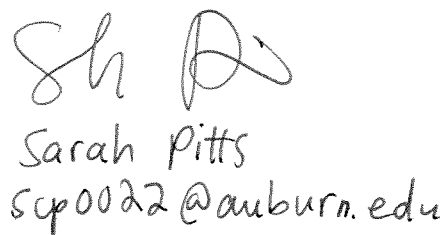 Sarah Pitts
scp0022@auburn.edu